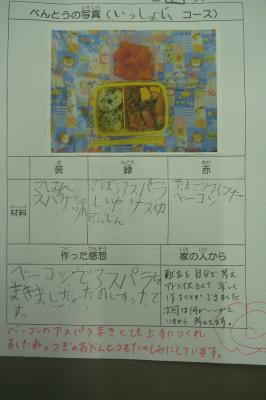 べんとうの写真(いっしょに コース)
黄
緑
赤
材料
ごはん
スパゲッティ
アスパラ
しいたけ
たまご ウインナー
ベーコン
作った感想
家の人から
ベーコンでアスパラを
まきました。たのしかったで
す。
献立を自分で考え
アドバイスなしで 楽しく
作ることができました
次回は何が いいか
いまから 考えてます。
ベーコンのアスパラまきとても上手につくれ
ましたね。つぎのおべんとうもたのしみにしています。